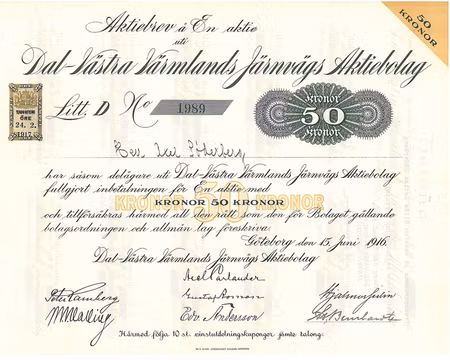 Aktiebrev å En aktie
uti
50
KRONOR
Dal-Västra Värmlands Järnvägs Aktiebolag
Litt. D No 1989
kronor
50
kronor
ÖRE
24. 2.
1917
har såsom delägare uti Dal-Västra Värmlands Järnvägs Aktiebolag
fullgjort inbetalningen för En aktie med
KRONOR 50 KRONOR
KRONOR 50 KRONOR
och tillförsäkras härmed all den rätt som den för Bolaget gällande
bolagsordningen och allmän lag föreskriva.
Göteborg den 15 Juni 1916.
Dal-Västra Värmlands Järnvägs Aktiebolag
Axel Carlander
Edv. Andersson
Härmed följa 10 st. vinstutdelningskuponger jämte talong.